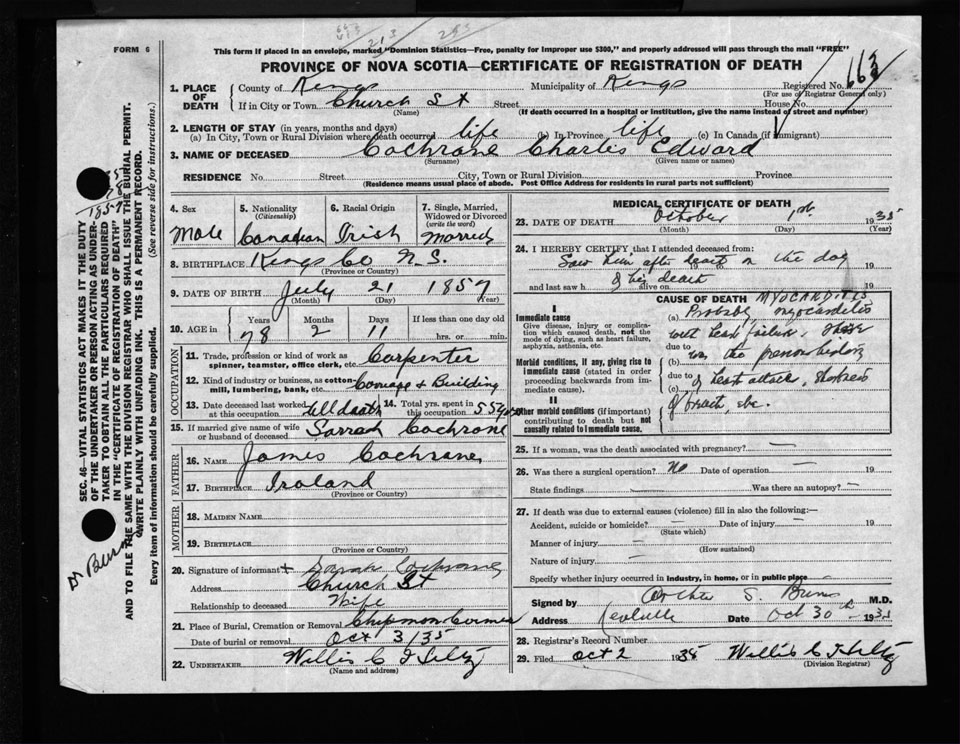 213 293
FORM 6
This form if placed in an envelope, marked "Dominion Statistics—Free, penalty for improper use $300," and properly addressed will pass through the mail "FREE"
PROVINCE OF NOVA SCOTIA—CERTIFICATE OF REGISTRATION OF DEATH
1. PLACE OF DEATH County of Kings Municipality of Kings Registered No. 663
(For use of Registrar General only)
If in City or Town Church St Street House No.
(Name) (If death occurred in a hospital or institution, give the name instead of street and number)
2. LENGTH OF STAY (in years, months and days)
(a) In City, Town or Rural Division where death occurred life (b) In Province life (c) In Canada (if immigrant)
3. NAME OF DECEASED Cochrane Charlis Edward
(Surname) (Given name or names)
RESIDENCE No. Street City, Town or Rural Division Province
(Residence means usual place of abode. Post Office Address for residents in rural parts not sufficient)
4. Sex Male
5. Nationality (Citizenship) Canadian
6. Racial Origin Irish
7. Single, Married, Widowed or Divorced (write the word) Married
8. BIRTHPLACE Kings Co N.S.
(Province or Country)
9. DATE OF BIRTH July 21 1857
(Month) (Day) (Year)
10. AGE in Years Months Days If less than one day old
78 2 11 hrs. or min.
OCCUPATION
11. Trade, profession or kind of work as spinner, teamster, office clerk, etc. Carpenter
12. Kind of industry or business, as cotton mill, lumbering, bank, etc. & Building
13. Date deceased last worked at this occupation till death 14. Total yrs. spent in this occupation 55 yrs
15. If married give name of wife or husband of deceased Sarrah Cochrane
FATHER
16. NAME James Cochrane
17. BIRTHPLACE Iroland
(Province or Country)
MOTHER
18. MAIDEN NAME
19. BIRTHPLACE
(Province or Country)
20. Signature of informant + Sarah Cochrane
Address Church St
Relationship to deceased Wife
21. Place of Burial, Cremation or Removal Chipmon Corner
Date of burial or removal Oct 3/35
22. UNDERTAKER Willis C
(Name and address)
MEDICAL CERTIFICATE OF DEATH
23. DATE OF DEATH October 1st 1935
(Month) (Day) (Year)
24. I HEREBY CERTIFY that I attended deceased from:
Saw him after death on the day 19
and last saw h alive on of his death 19
I
Immediate cause
Give disease, injury or complication which caused death, not the mode of dying, such as heart failure, asphyxia, asthenia, etc.
Morbid conditions, if any, giving rise to immediate cause (stated in order proceeding backwards from immediate cause).
II
Other morbid conditions (if important) contributing to death but not causally related to immediate cause.
CAUSE OF DEATH MYOCARDITIS
(a) Probably myocarditis
with heart failure.
due to
(b) was the previous history
due to
(c) of heart attack, shortness
of breath, etc.
25. If a woman, was the death associated with pregnancy? —
26. Was there a surgical operation? No Date of operation — 19
State findings Was there an autopsy? —
27. If death was due to external causes (violence) fill in also the following:—
Accident, suicide or homicide? — Date of injury — 19
(State which)
Manner of injury —
(How sustained)
Nature of injury —
Specify whether injury occurred in industry, in home, or in public place —
Signed by Arthur S. Burns M.D.
Address Kentville Date Oct 30th 193
28. Registrar's Record Number
29. Filed Oct 2 1935 Willis C
(Division Registrar)
SEC. 46—VITAL STATISTICS ACT MAKES IT THE DUTY
OF THE UNDERTAKER OR PERSON ACTING AS UNDERTAKER TO OBTAIN ALL THE PARTICULARS REQUIRED
IN THE "CERTIFICATE OF REGISTRATION OF DEATH"
AND TO FILE THE SAME WITH THE DIVISION REGISTRAR WHO SHALL ISSUE THE BURIAL PERMIT.
WRITE PLAINLY WITH UNFADING INK. THIS IS A PERMANENT RECORD.
Every item of information should be carefully supplied. (See reverse side for instructions.)
1857
Dr Burns